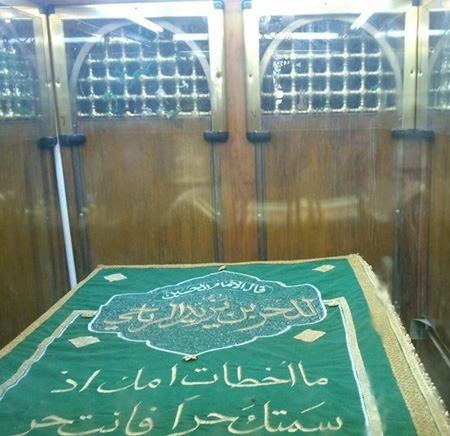 قال الإمام الحسين
للحر بن يزيد الرياحي
ما اخطات امك اذ
سمتك حراً فانت حر